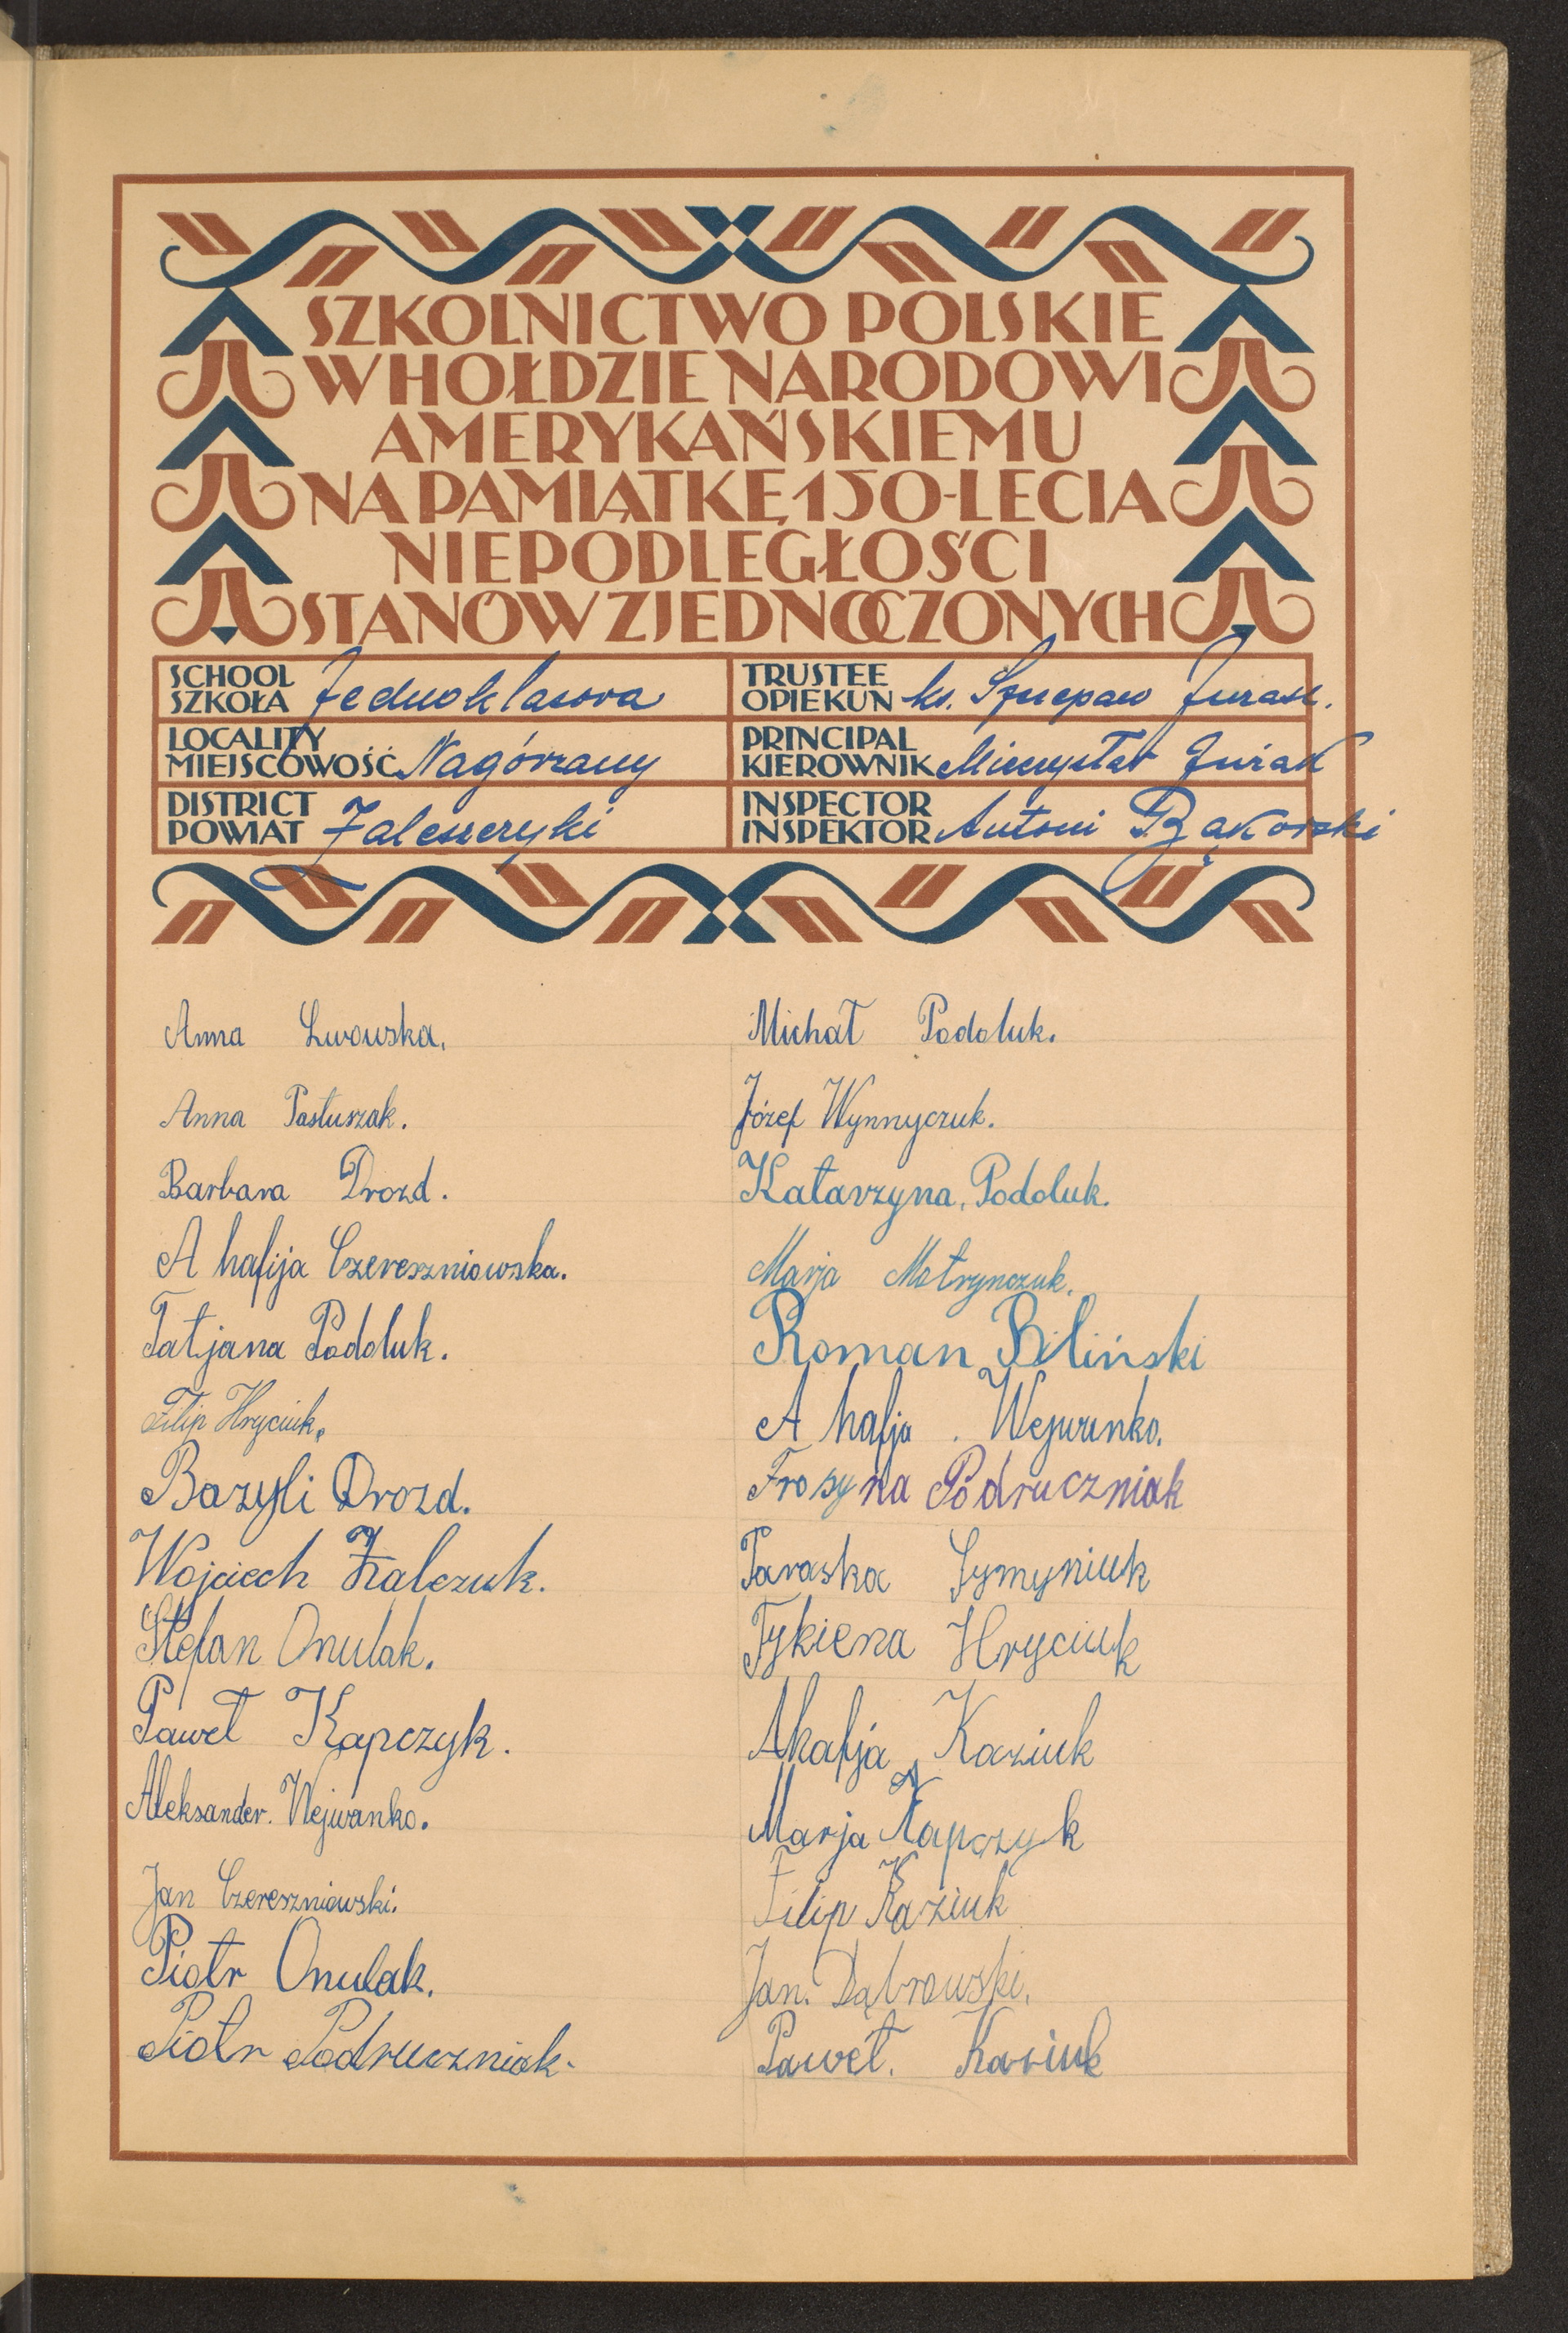 SZKOLNICTWO POLSKIE
W HOŁDZIE NARODOWI
AMERYKAŃSKIEMU
NA PAMIĄTKĘ 150-LECIA
NIEPODLEGŁOŚCI
STANÓW ZJEDNOCZONYCH
SCHOOL
SZKOŁA Jednoklasowa
TRUSTEE
OPIEKUN ks. Szczepan Jurasz.
LOCALITY
MIEJSCOWOŚĆ Nagórzany
PRINCIPAL
KIEROWNIK Mieczysław
DISTRICT
POWIAT Zaleszczyki
INSPECTOR
INSPEKTOR Antoni Bąkowski
Anna Lwowska.
Anna Pastuszak.
Barbara Drozd.
Ahafija Czereszniowska.
Tatjana Podoluk.
Filip Hryciuk.
Bazyli Drozd.
Wojciech
Stefan Onulak.
Paweł Kapczyk.
Aleksander. Wejwanko.
Jan Czereszniowski.
Piotr Onulak.
Piotr Podruczniak.
Michał Podoluk.
Józef Wynnyczuk.
Katarzyna, Podoluk.
Marja
Roman Biliński
Ahafja . Wejwanko.
Frosyna Podruczniak
Paraska Symyniuk
Tykiena Hryciuk
Ahafja Kaziuk
Marja Kapczyk
Filip Kaziuk
Jan. Dąbrowski.
Paweł. Kaziuk